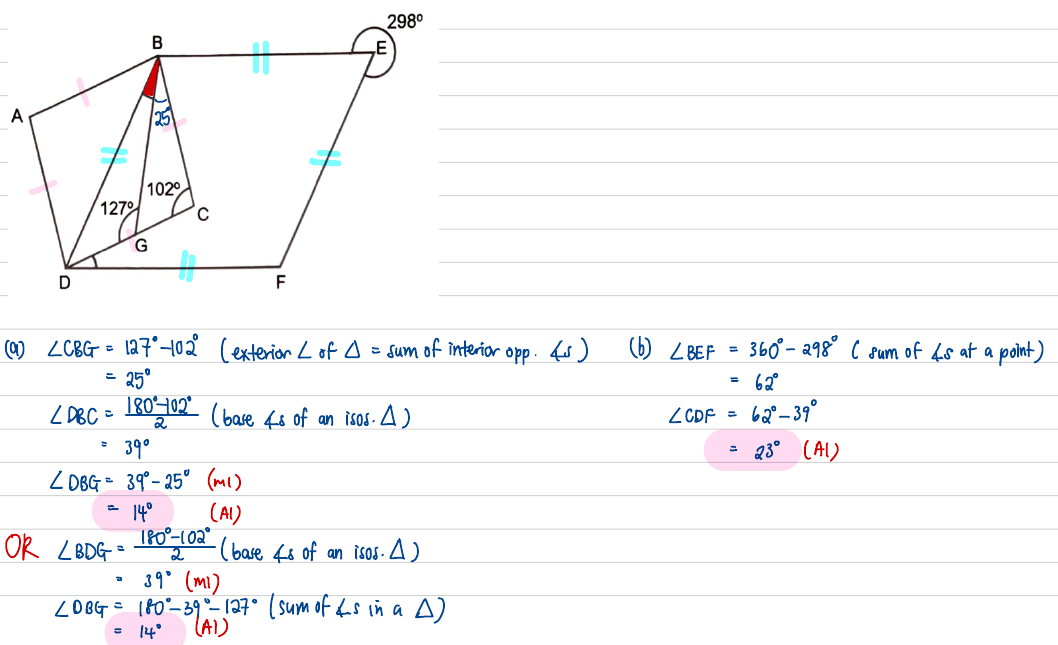 298°
B
E
A
25°
102°
127°
C
G
D
F
(a) ∠CBG = 127° - 102° (exterior ∠ of △ = sum of interior opp. ∠s)
= 25°
∠DBC = 180° - 102° / 2 (base ∠s of an isos. △)
= 39°
∠DBG = 39° - 25° (M1)
= 14° (A1)
OR ∠BDG = 180° - 102° / 2 (base ∠s of an isos. △)
= 39° (M1)
∠DBG = 180° - 39° - 127° (sum of ∠s in a △)
= 14° (A1)
(b) ∠BEF = 360° - 298° (sum of ∠s at a point)
= 62°
∠CDF = 62° - 39°
= 23° (A1)